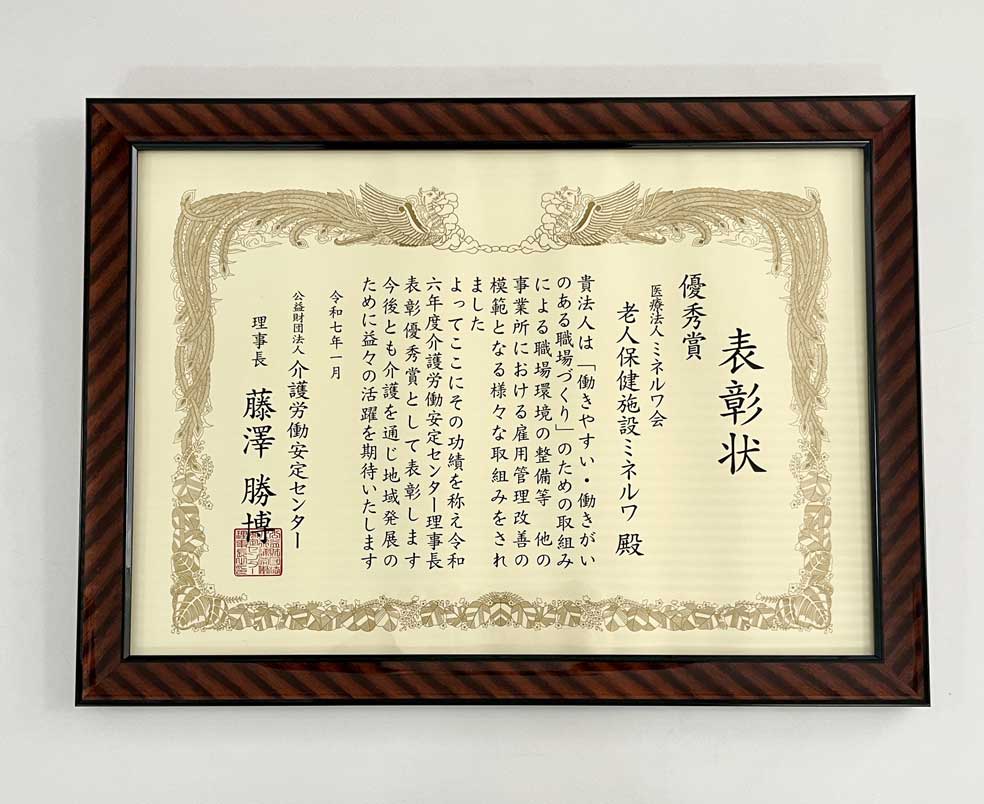 表彰状
優秀賞
医療法人ミネルワ会
老人保健施設ミネルワ 殿
貴法人は「働きやすい・働きがい
のある職場づくり」のための取組み
による職場環境の整備等 他の
事業所における雇用管理改善の
模範となる様々な取組みをされ
ました
よってここにその功績を称え令和
六年度介護労働安定センター理事長
表彰優秀賞として表彰します
今後とも介護を通じ地域発展の
ために益々の活躍を期待いたします
令和七年一月
公益財団法人 介護労働安定センター
理事長 藤澤 勝博